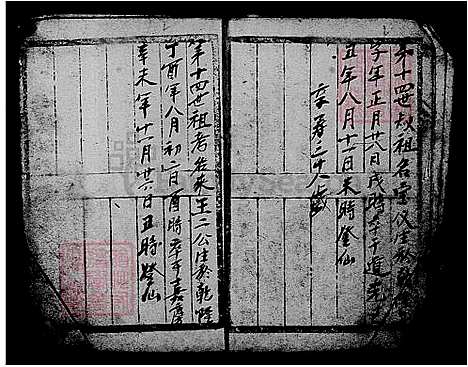 第十四世叔祖名宝仪生於乾隆
子年正月廿八日戌時卒于道光
丑年八月十一日未時登仙
享寿三十八歲
第十四世祖考 來王二公生於乾隆
丁酉年八月初二日酉時卒于嘉慶
辛未年十一月廿六日丑時登仙